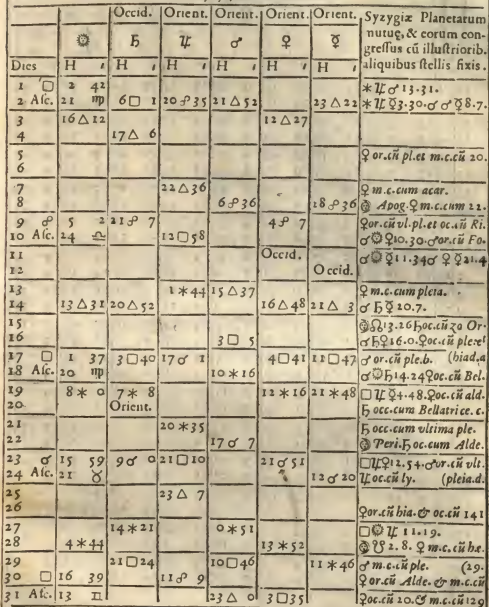 Occid. Orient. Orient. Orient. Orient. Syzygiæ Planetarum
mutuę, & eorum con-
☉ ♄ ♃ ♂ ♀ ☿ gressus cū illustriorib.
Dies H ′ H ′ H ′ H ′ H ′ H ′ aliquibus stellis fixis.
1 □ 2 42 ⚹♃♂13.31.
2 Asc. 21 ♍ 6□1 20☍35 21△52 23△22 ⚹♃☿3.30.♂♂☿8.7.
3 16△12 12△27
4 17△6
5 ♀or.cū pl.et m.c.cū 20.
6
7 22△36 ♀m.c.cum acar.
8 6☍36 18☍36 Apog.♀m.c.cum 22.
9 ☍ 5 2 21☍7 4☍7 ♀or.cū vl.pl.et oc.cū Ri.
10 Asc. 24 ♎ 12□58 ☌☉♀10.30.♂or.cū Fo.
11 Occid. ☌☉☿11.34☌♀☿21.4
12 Occid.
13 1⚹44 15△37 ♀m.c.cum pleia.
14 13△31 20△52 16△48 21△3 ☌♄☿20.7.
15 ☊13.26♄oc.cū30 Or-
16 3□5 ☌♄♀16.0.♀oc.cū ple.et
17 □ 1 37 3□40 17☌1 4□41 11□47 ♂or.cū ple.b. (hiad.a
18 Asc. 20 ♍ 10⚹16 ☌☉♄14.24♀oc.cū Bel.
19 8⚹0 7⚹8 12⚹16 21⚹48 □♃♀4.48.♀oc.cū ald.
20 Orient. ♄occ.cum Bellatrice.c.
21 20⚹35 ♄occ.cum vltima ple.
22 17☌7 Peri.♄oc.cum Alde.
23 ☌ 15 59 9☌0 21□10 21☌51 □♃♀12.54.♂or.cū vlt.
24 Asc. 21 ♉ 12☌20 ♃oc.cū ly. (pleia.d.
25 23△7
26 ♀or.cū hia.& oc.cū 141
27 14⚹21 0⚹51 □☉♃11.19.
28 4⚹44 13⚹52 ☋2.8.♀m.c.cū hæ.
29 21□24 10□46 11⚹46 ♂m.c.cū ple. (29.
30 □ 16 39 11☍9 ♀or.cū Alde.& m.c.cū
31 Asc. 13 ♊ 23△0 3□35 ♀oc.cū 20.& m.c.cū120